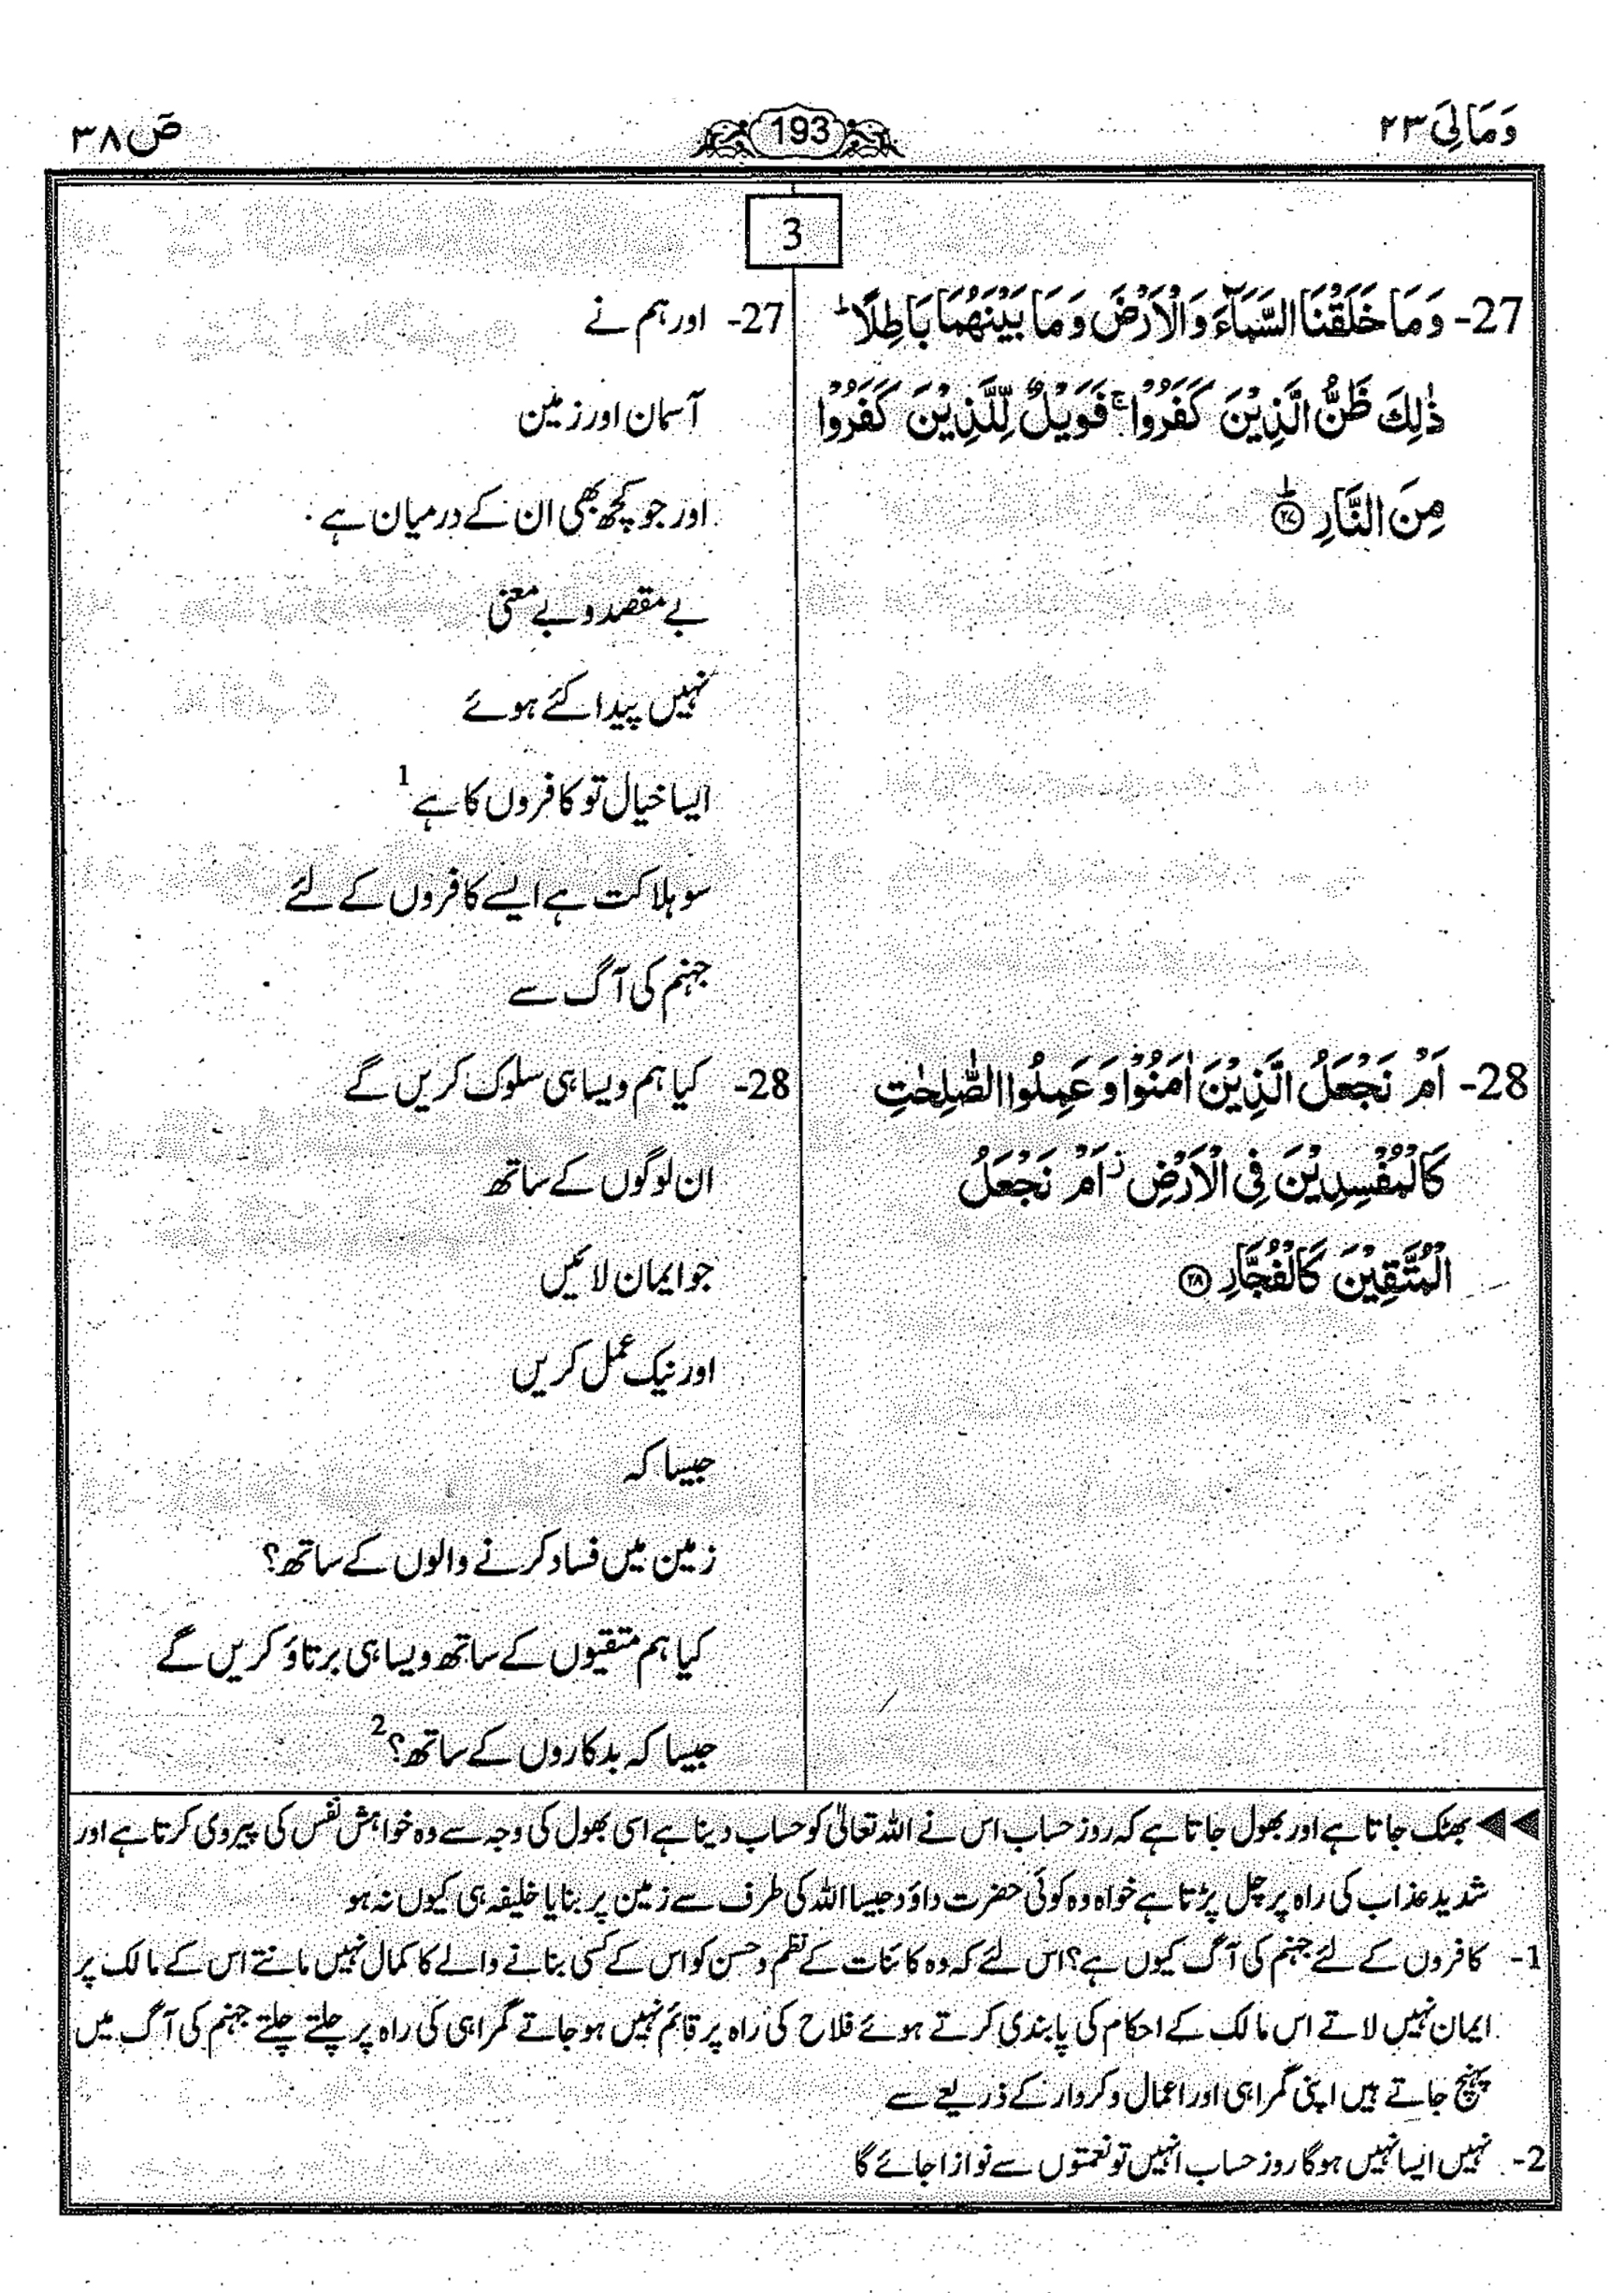 وَمَالِیَ ۲۳
193
صٓ ۳۸
3
27- وَمَا خَلَقْنَا السَّمَآءَ وَالْاَرْضَ وَمَا بَیْنَهُمَا بَاطِلًا ؕ
ذٰلِكَ ظَنُّ الَّذِیْنَ كَفَرُوْا ۚ فَوَیْلٌ لِّلَّذِیْنَ كَفَرُوْا
مِنَ النَّارِ ؕ ۲۷
27- اور ہم نے
آسمان اور زمین
اور جو کچھ بھی ان کے درمیان ہے
بے مقصد و بے معنی
نہیں پیدا کئے ہوئے
ایسا خیال تو کافروں کا ہے 1
سو ہلاکت ہے ایسے کافروں کے لئے
جہنم کی آگ سے
28- اَمْ نَجْعَلُ الَّذِیْنَ اٰمَنُوْا وَعَمِلُوا الصّٰلِحٰتِ
كَالْمُفْسِدِیْنَ فِی الْاَرْضِ ؗ اَمْ نَجْعَلُ
الْمُتَّقِیْنَ كَالْفُجَّارِ ۲۸
28- کیا ہم ویسا ہی سلوک کریں گے
ان لوگوں کے ساتھ
جو ایمان لائیں
اور نیک عمل کریں
جیسا کہ
زمین میں فساد کرنے والوں کے ساتھ؟
کیا ہم متقیوں کے ساتھ ویسا ہی برتاؤ کریں گے
جیسا کہ بدکاروں کے ساتھ؟ 2
◀◀ بھٹک جاتا ہے اور بھول جاتا ہے کہ روز حساب اس نے اللہ تعالیٰ کو حساب دینا ہے اسی بھول کی وجہ سے وہ خواہش نفس کی پیروی کرتا ہے اور
شدید عذاب کی راہ پر چل پڑتا ہے خواہ وہ کوئی حضرت داؤد جیسا اللہ کی طرف سے زمین پر بنایا خلیفہ ہی کیوں نہ ہو
1- کافروں کے لئے جہنم کی آگ کیوں ہے؟ اس لئے کہ وہ کائنات کے نظم و حسن کو اس کے کسی بنانے والے کا کمال نہیں مانتے اس کے مالک پر
ایمان نہیں لاتے اس مالک کے احکام کی پابندی کرتے ہوئے فلاح کی راہ پر قائم نہیں ہو جاتے گمراہی کی راہ پر چلتے چلتے جہنم کی آگ میں
پہنچ جاتے ہیں اپنی گمراہی اور اعمال و کردار کے ذریعے سے
2- نہیں ایسا نہیں ہوگا روز حساب انہیں تو نعمتوں سے نوازا جائے گا